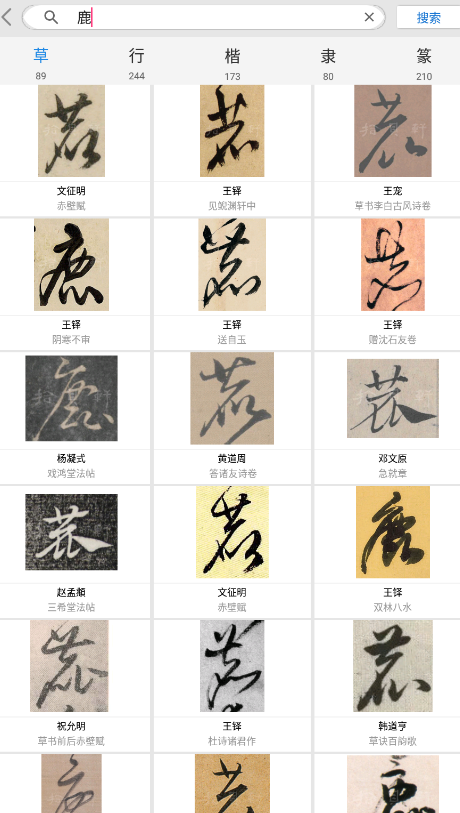 鹿
搜索
草 行 楷 隶 篆
89 244 173 80 210
文征明 王铎 王宠
赤壁赋 见㒺渊轩中 草书李白古风诗卷
王铎 王铎 王铎
阴寒不审 送自玉 赠沈石友卷
杨凝式 黄道周 邓文原
戏鸿堂法帖 答诸友诗卷 急就章
赵孟頫 文征明 王铎
三希堂法帖 赤壁赋 双林八水
祝允明 王铎 韩道亨
草书前后赤壁赋 杜诗诸君作 草诀百韵歌